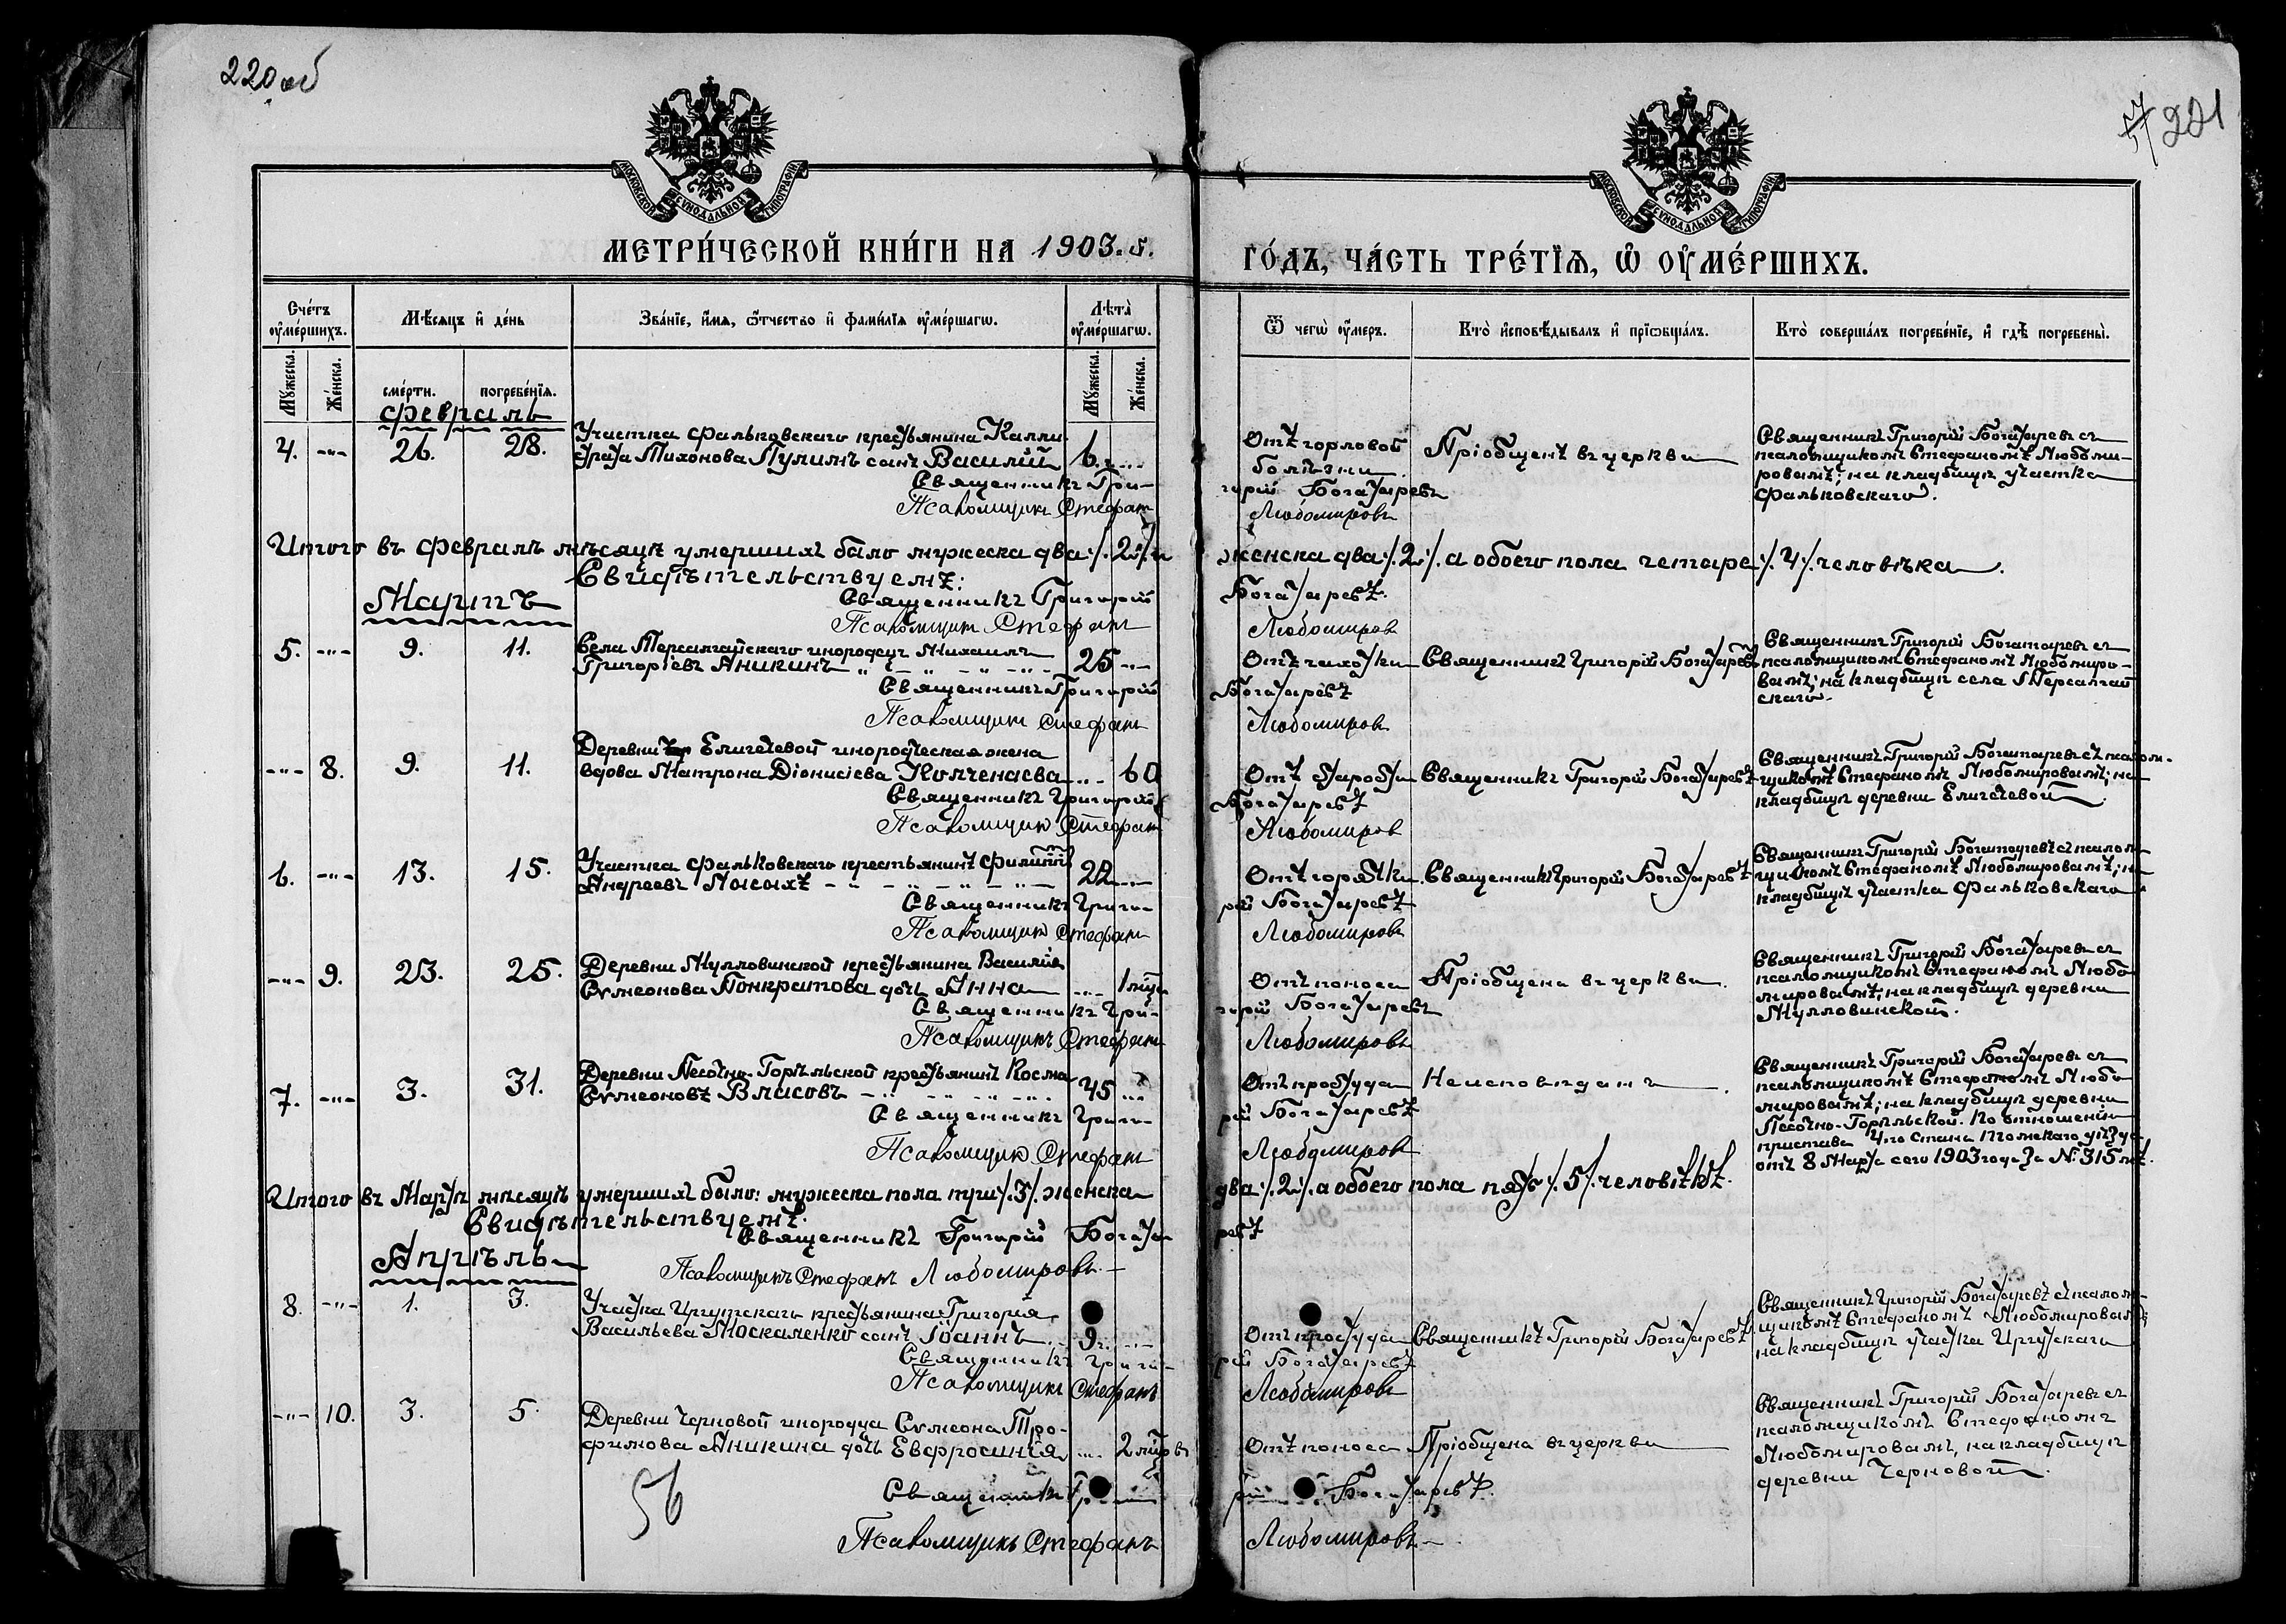 220 об
221
МОСКОВСКОЙ СУНОДАЛЬНОЙ ТИПОГРАФІИ
МОСКОВСКОЙ СУНОДАЛЬНОЙ ТИПОГРАФІИ
МЕТРИ́ЧЕСКОЙ КНИ́ГИ НА 1903.
ГО́ДЪ, ЧА́СТЬ ТРЕ́ТІѦ, Ѡ ОУМЕ́РШИХЪ.
Сче́тъ оуме́ршихъ.
Мѣ́сяцъ и де́нь
Зва́ніе, и́мя, ѻ́тчество и фами́лія оуме́ршагѡ.
Лѣта̀ оуме́ршагѡ.
Ѿ чегѡ̀ оу́меръ.
Кто̀ исповѣ́дывалъ и пріѡбща́лъ.
Кто̀ соверша́лъ погребе́ніе, и гдѣ̀ погребены̀.
Мꙋ́жеска.
Же́нска.
сме́рти.
погребе́нія.
Мꙋ́жеска.
Же́нска.
Февраль
4. -"- 26. 28. Участка Фальковскаго крестьянина Калли-
страта Тихонова Пулинъ сынъ Василій 6 г.
Отъ горловой болѣзни
Пріобщенъ въ церкви
Священникъ Григорій Богатыревъ съ
псаломщикомъ Стефаномъ Любоми-
ровымъ; на кладбищѣ участка
Фальковскаго.
Священникъ Гри-
горій Богатыревъ
Псаломщикъ Стефанъ
Любомировъ
Итого въ Февралѣ мѣсяцѣ умершихъ было мужеска два /.2/. и
женска два /.2./. а обоего пола четыре /.4/. человѣка.
Свидѣтельствуемъ:
Священникъ Григорій
Богатыревъ.
Псаломщикъ Стефанъ
Любомировъ
Мартъ
5. -"- 9. 11. Села Терсалгайскаго инородецъ Михаилъ
Григоріевъ Аникинъ 25
Отъ чахотки
Священникъ Григорій Богатыревъ
Священникъ Григорій Богатыревъ съ
псаломщикомъ Стефаномъ Любомиро-
вымъ; на кладбищѣ села Терсалгай
скаго.
Священникъ Григорій
Богатыревъ
Псаломщикъ Стефанъ
Любомировъ
-"- 8. 9. 11. Деревни Еличевой инородческая жена
вдова Матрона Діонисіева 60
Священникъ Григорій Богатыревъ
Священникъ Григорій Богатыревъ съ псалом-
щикомъ Стефаномъ Любомировымъ; на
кладбищѣ деревни Еличевой
Священникъ Григорій
Богатыревъ
Псаломщикъ Стефанъ
Любомировъ
6. -"- 13. 15. Участка Фальковскаго крестьянинъ Филиппъ
Андреевъ Лысыхъ 22
Отъ горячки
Священникъ Григорій Богатыревъ
Священникъ Григорій Богатыревъ съ псалом-
щикомъ Стефаномъ Любомировымъ; на
кладбищѣ участка Фальковскаго
Священникъ Григо-
рій Богатыревъ
Псаломщикъ Стефанъ
Любомировъ
-"- 9. 23. 25. Деревни Мулловинской крестьянина Василія
Сѵмеонова Понкратова дочь Анна 1 мѣся
Отъ поноса
Пріобщена въ церкви.
Священникъ Григорій Богатыревъ съ
псаломщикомъ Стефаномъ Любо-
мировымъ; на кладбищѣ деревни
Мулловинской.
Священникъ Гри-
горій Богатыревъ
Псаломщикъ Стефанъ
Любомировъ
7. -"- 3. 31. Деревни Песочно-Горѣльской крестьянинъ Косма
Сѵмеоновъ Власовъ 45
Отъ простуды
Неисповѣданъ
Священникъ Григорій Богатыревъ съ
псаломщикомъ Стефаномъ Любо-
мировымъ; на кладбищѣ деревни
Песочно-Горѣльской. По отношенію
пристава 4го стана Томскаго уѣзда
отъ 8 Марта сего 1903 года за №. 315м.
Священникъ Григо-
рій Богатыревъ
Псаломщикъ Стефанъ
Любомировъ
Итого въ Мартѣ мѣсяцѣ умершихъ было: мужеска пола три /.3/. женска
два /.2./. а обоего пола пять /.5/. человѣкъ.
Свидѣтельствуемъ:
Священникъ Григорій Богаты-
ревъ
Псаломщикъ Стефанъ Любомировъ.
Апрѣль
8. -"- 1. 3. Участка Иргутскаго крестьянина Григорія
Васильева Москаленко сынъ Іоаннъ 9 г.
Отъ простуды
Священникъ Григорій Богатыревъ
Священникъ Григорій Богатыревъ съ псалом-
щикомъ Стефаномъ Любомировымъ;
на кладбищѣ участка Иргутскаго
Священникъ Григо-
рій Богатыревъ
Псаломщикъ Стефанъ
Любомировъ
-"- 10. 3. 5. Деревни Черновой инородца Сѵмеона Тро-
фимова Аникина дочь Евфросинія 2 мѣс
Отъ поноса
Пріобщена въ церкви
Священникъ Григорій Богатыревъ съ
псаломщикомъ Стефаномъ
Любомировымъ, на кладбищѣ
деревни Черновой.
Священникъ
Богатыревъ.
Псаломщикъ Стефанъ
Любомировъ
56